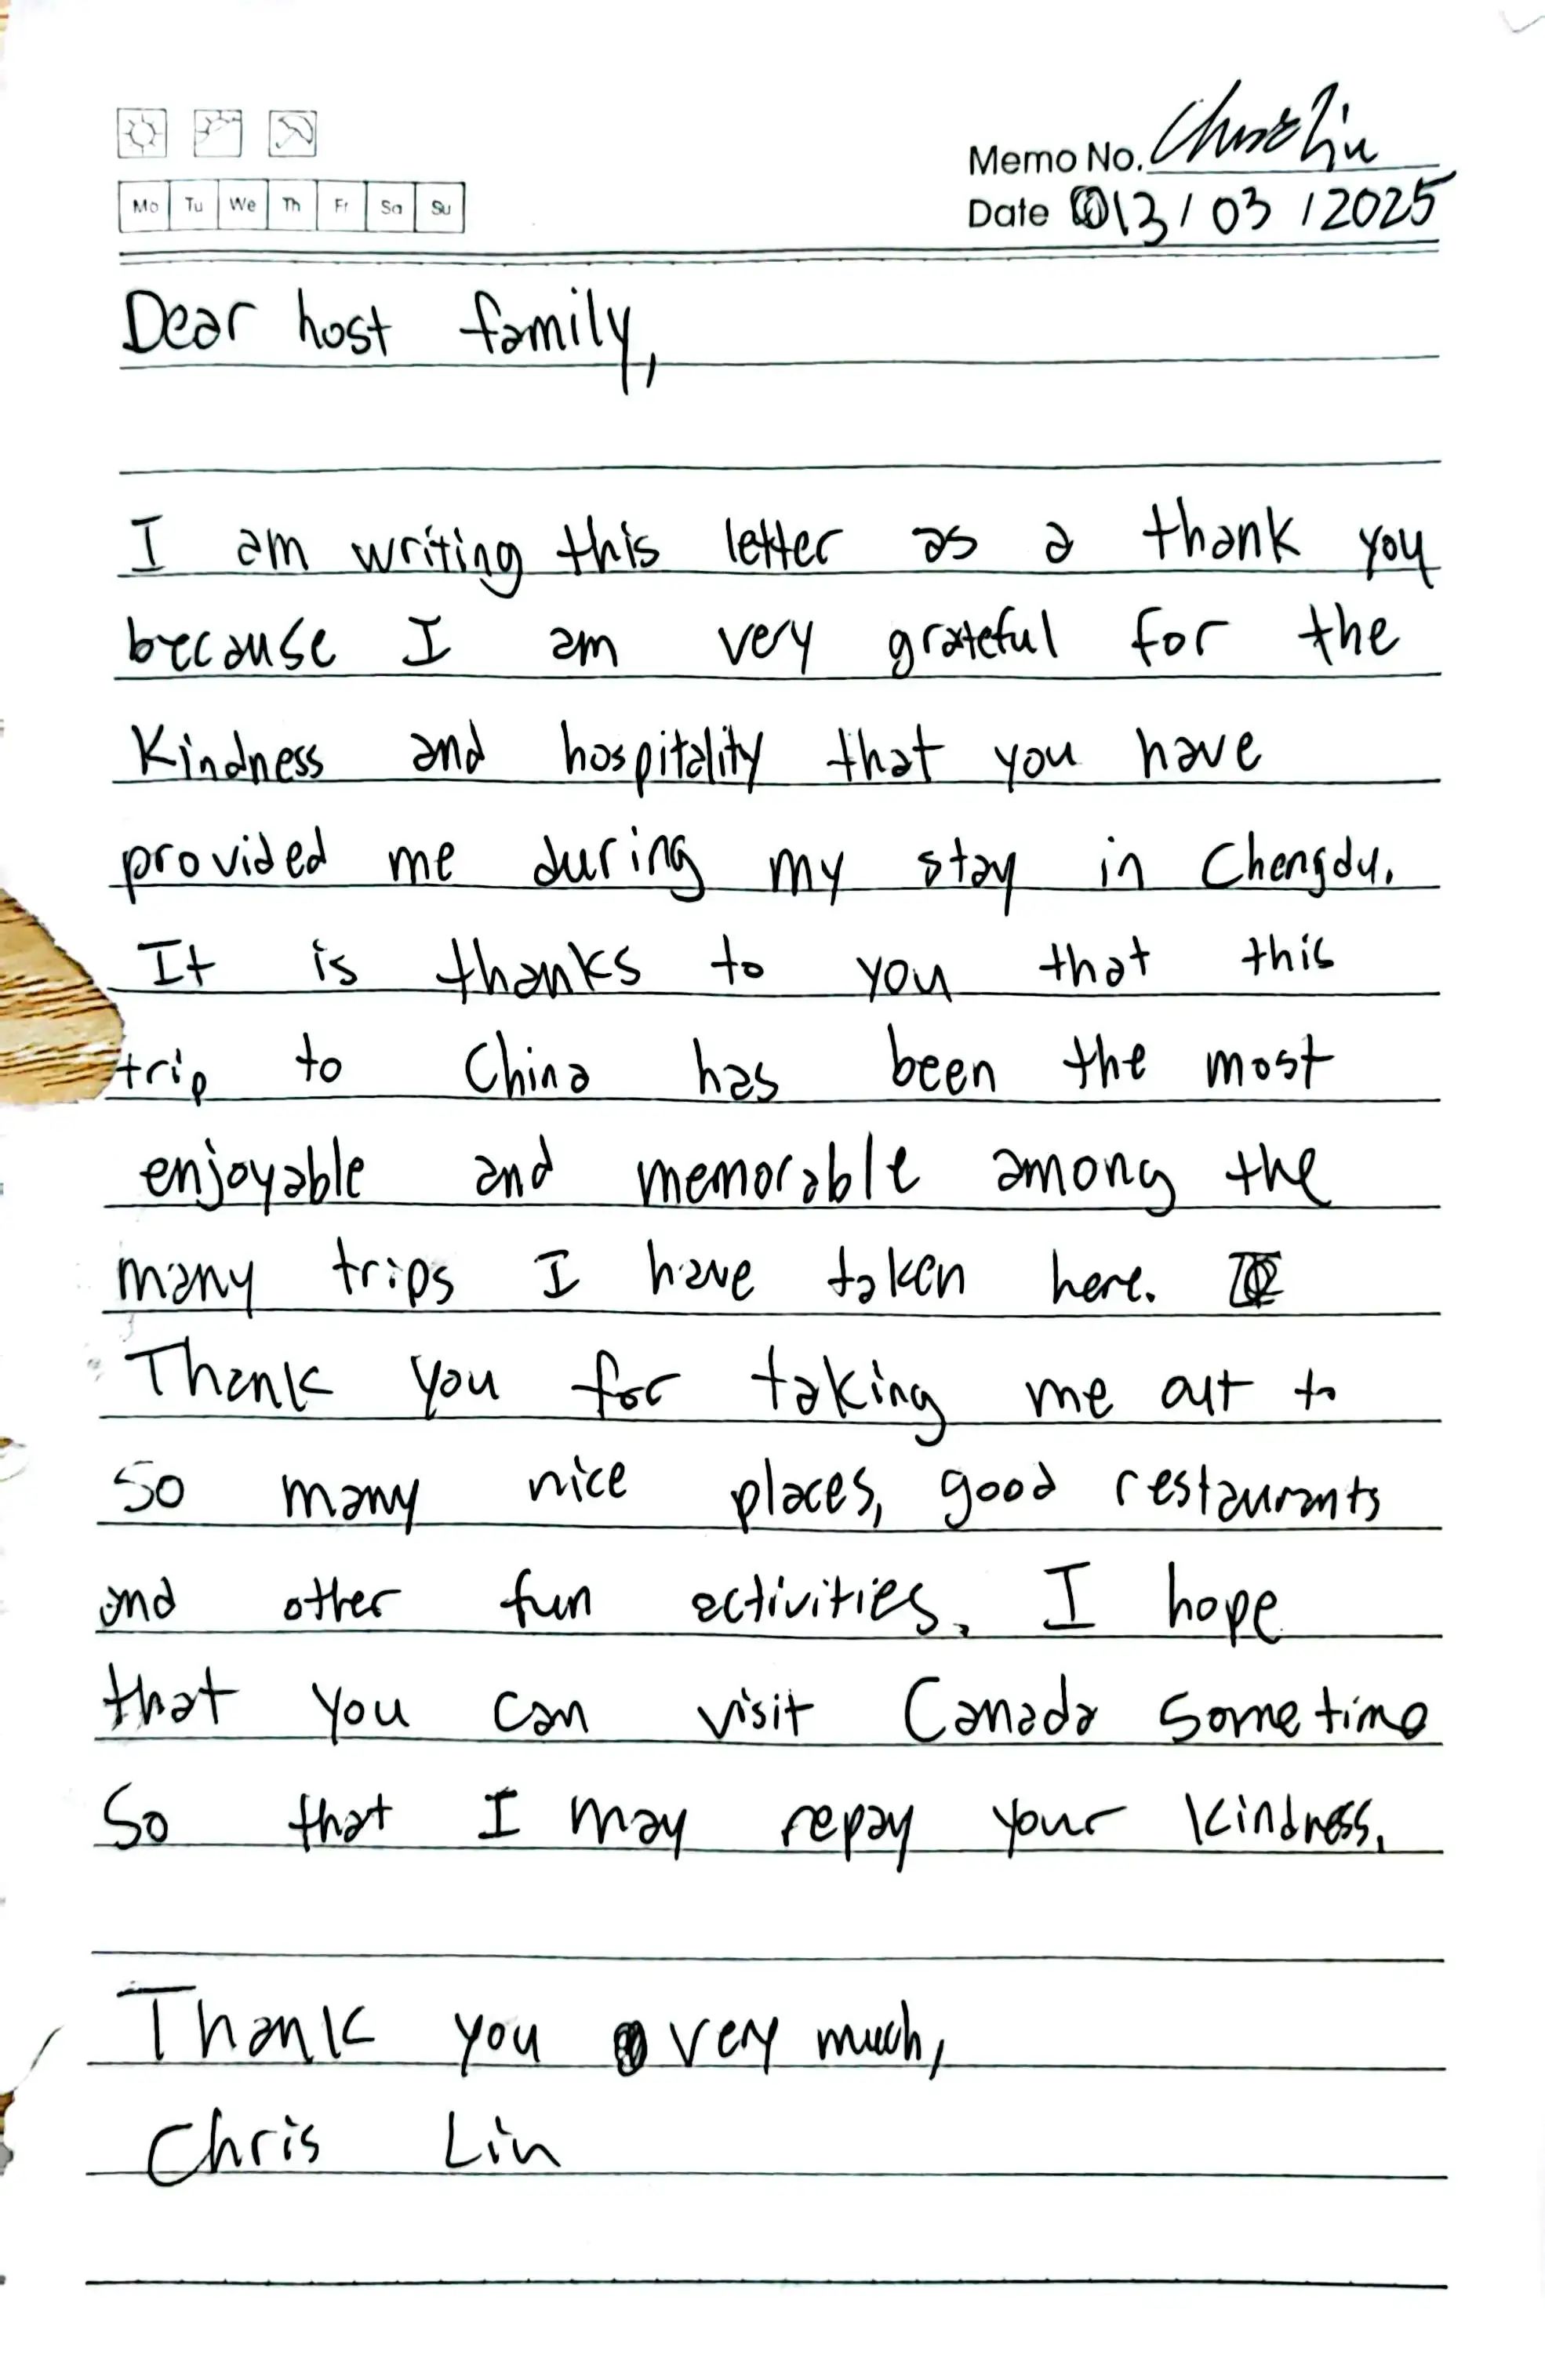 Memo No. Chris Lin
Mo Tu We Th Fr Sa Su
Date 13/03/2025
Dear host family,
I am writing this letter as a thank you
because I am very grateful for the
kindness and hospitality that you have
provided me during my stay in Chengdu.
It is thanks to you that this
trip to China has been the most
enjoyable and memorable among the
many trips I have taken here.
Thank you for taking me out to
so many nice places, good restaurants
and other fun activities. I hope
that you can visit Canada sometime
so that I may repay your kindness.
Thank you very much,
Chris Lin